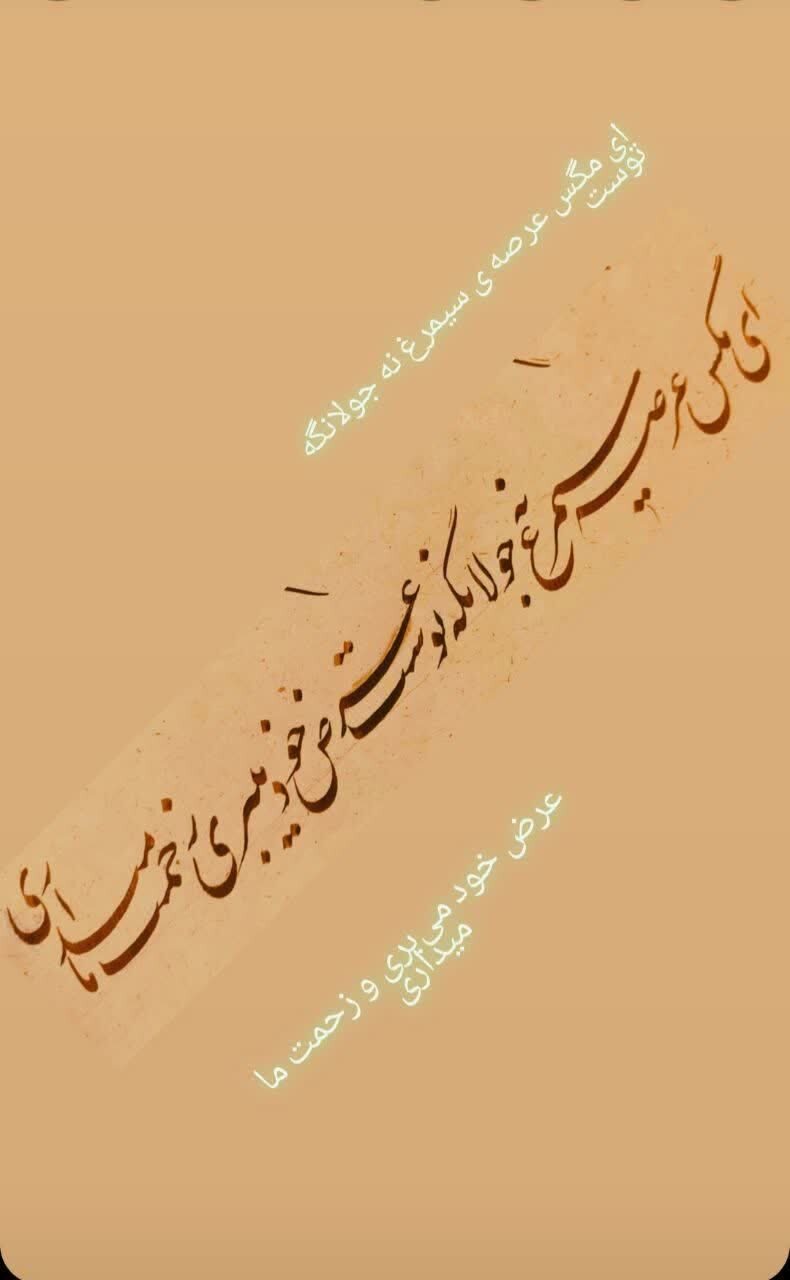 ای مگس عرصه ی سیمرغ نه جولانگه
توست
ای مگس عرصه سیمرغ نه جولانگه توست عرض خود میبری و زحمت ما میداری
عرض خود می بری و زحمت ما
میداری